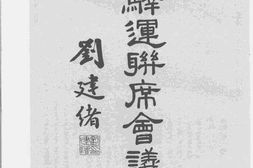 運聯席會議
劉建緒